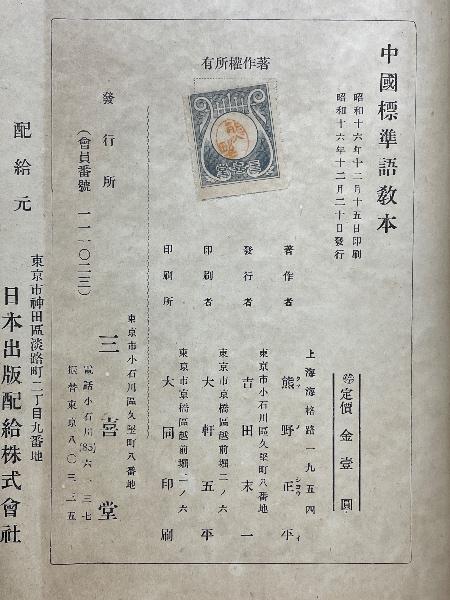 中國標準語教本
昭和十六年十二月十五日印刷
昭和十六年十二月二十日發行
定價金壹圓
著作權所有
上海海格路一九五四
著作者 熊野正平
東京市小石川區久堅町八番地
發行者 吉田末一
東京市京橋區越前堀二ノ六
印刷者 大軒五平
東京市京橋區越前堀二ノ六
印刷所 大同印刷
發行所
東京市小石川區久堅町八番地
三喜堂
電話小石川(85)六一三七
振替東京八〇三三五
(會員番號 一一一〇二三)
配給元
東京市神田區淡路町二丁目九番地
日本出版配給株式會社